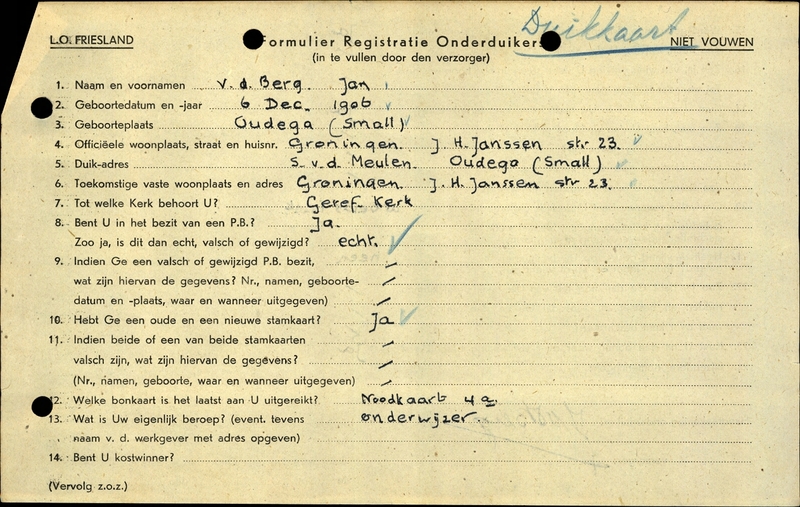 Duikkaart
L.O. FRIESLAND
Formulier Registratie Onderduikers
NIET VOUWEN
(in te vullen door den verzorger)
1. Naam en voornamen v.d. Berg. Jan
2. Geboortedatum en -jaar 6 Dec. 1906
3. Geboorteplaats Oudega (Small)
4. Officiëele woonplaats, straat en huisnr. Groningen. J. H. Janssen str 23.
5. Duik-adres S. v.d. Meulen. Oudega (Small)
6. Toekomstige vaste woonplaats en adres Groningen. J. H. Janssen str 23.
7. Tot welke Kerk behoort U? Geref. Kerk
8. Bent U in het bezit van een P.B.? Ja.
Zoo ja, is dit dan echt, valsch of gewijzigd? echt.
9. Indien Ge een valsch of gewijzigd P.B. bezit,
wat zijn hiervan de gegevens? Nr., namen, geboorte-
datum en -plaats, waar en wanneer uitgegeven)
10. Hebt Ge een oude en een nieuwe stamkaart? Ja
11. Indien beide of een van beide stamkaarten
valsch zijn, wat zijn hiervan de gegevens?
(Nr., namen, geboorte, waar en wanneer uitgegeven)
12. Welke bonkaart is het laatst aan U uitgereikt? Noodkaart 4a.
13. Wat is Uw eigenlijk beroep? (event. tevens onderwijzer
naam v. d. werkgever met adres opgeven)
14. Bent U kostwinner?
(Vervolg z.o.z.)